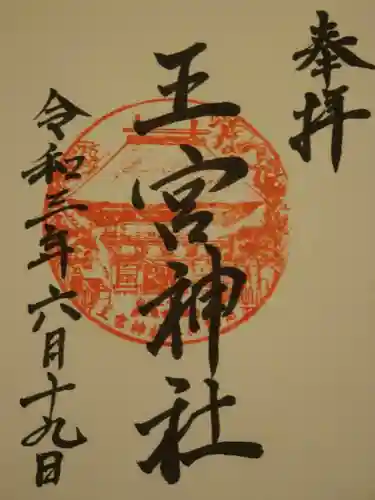 奉拝
王宮神社
令和三年六月十九日